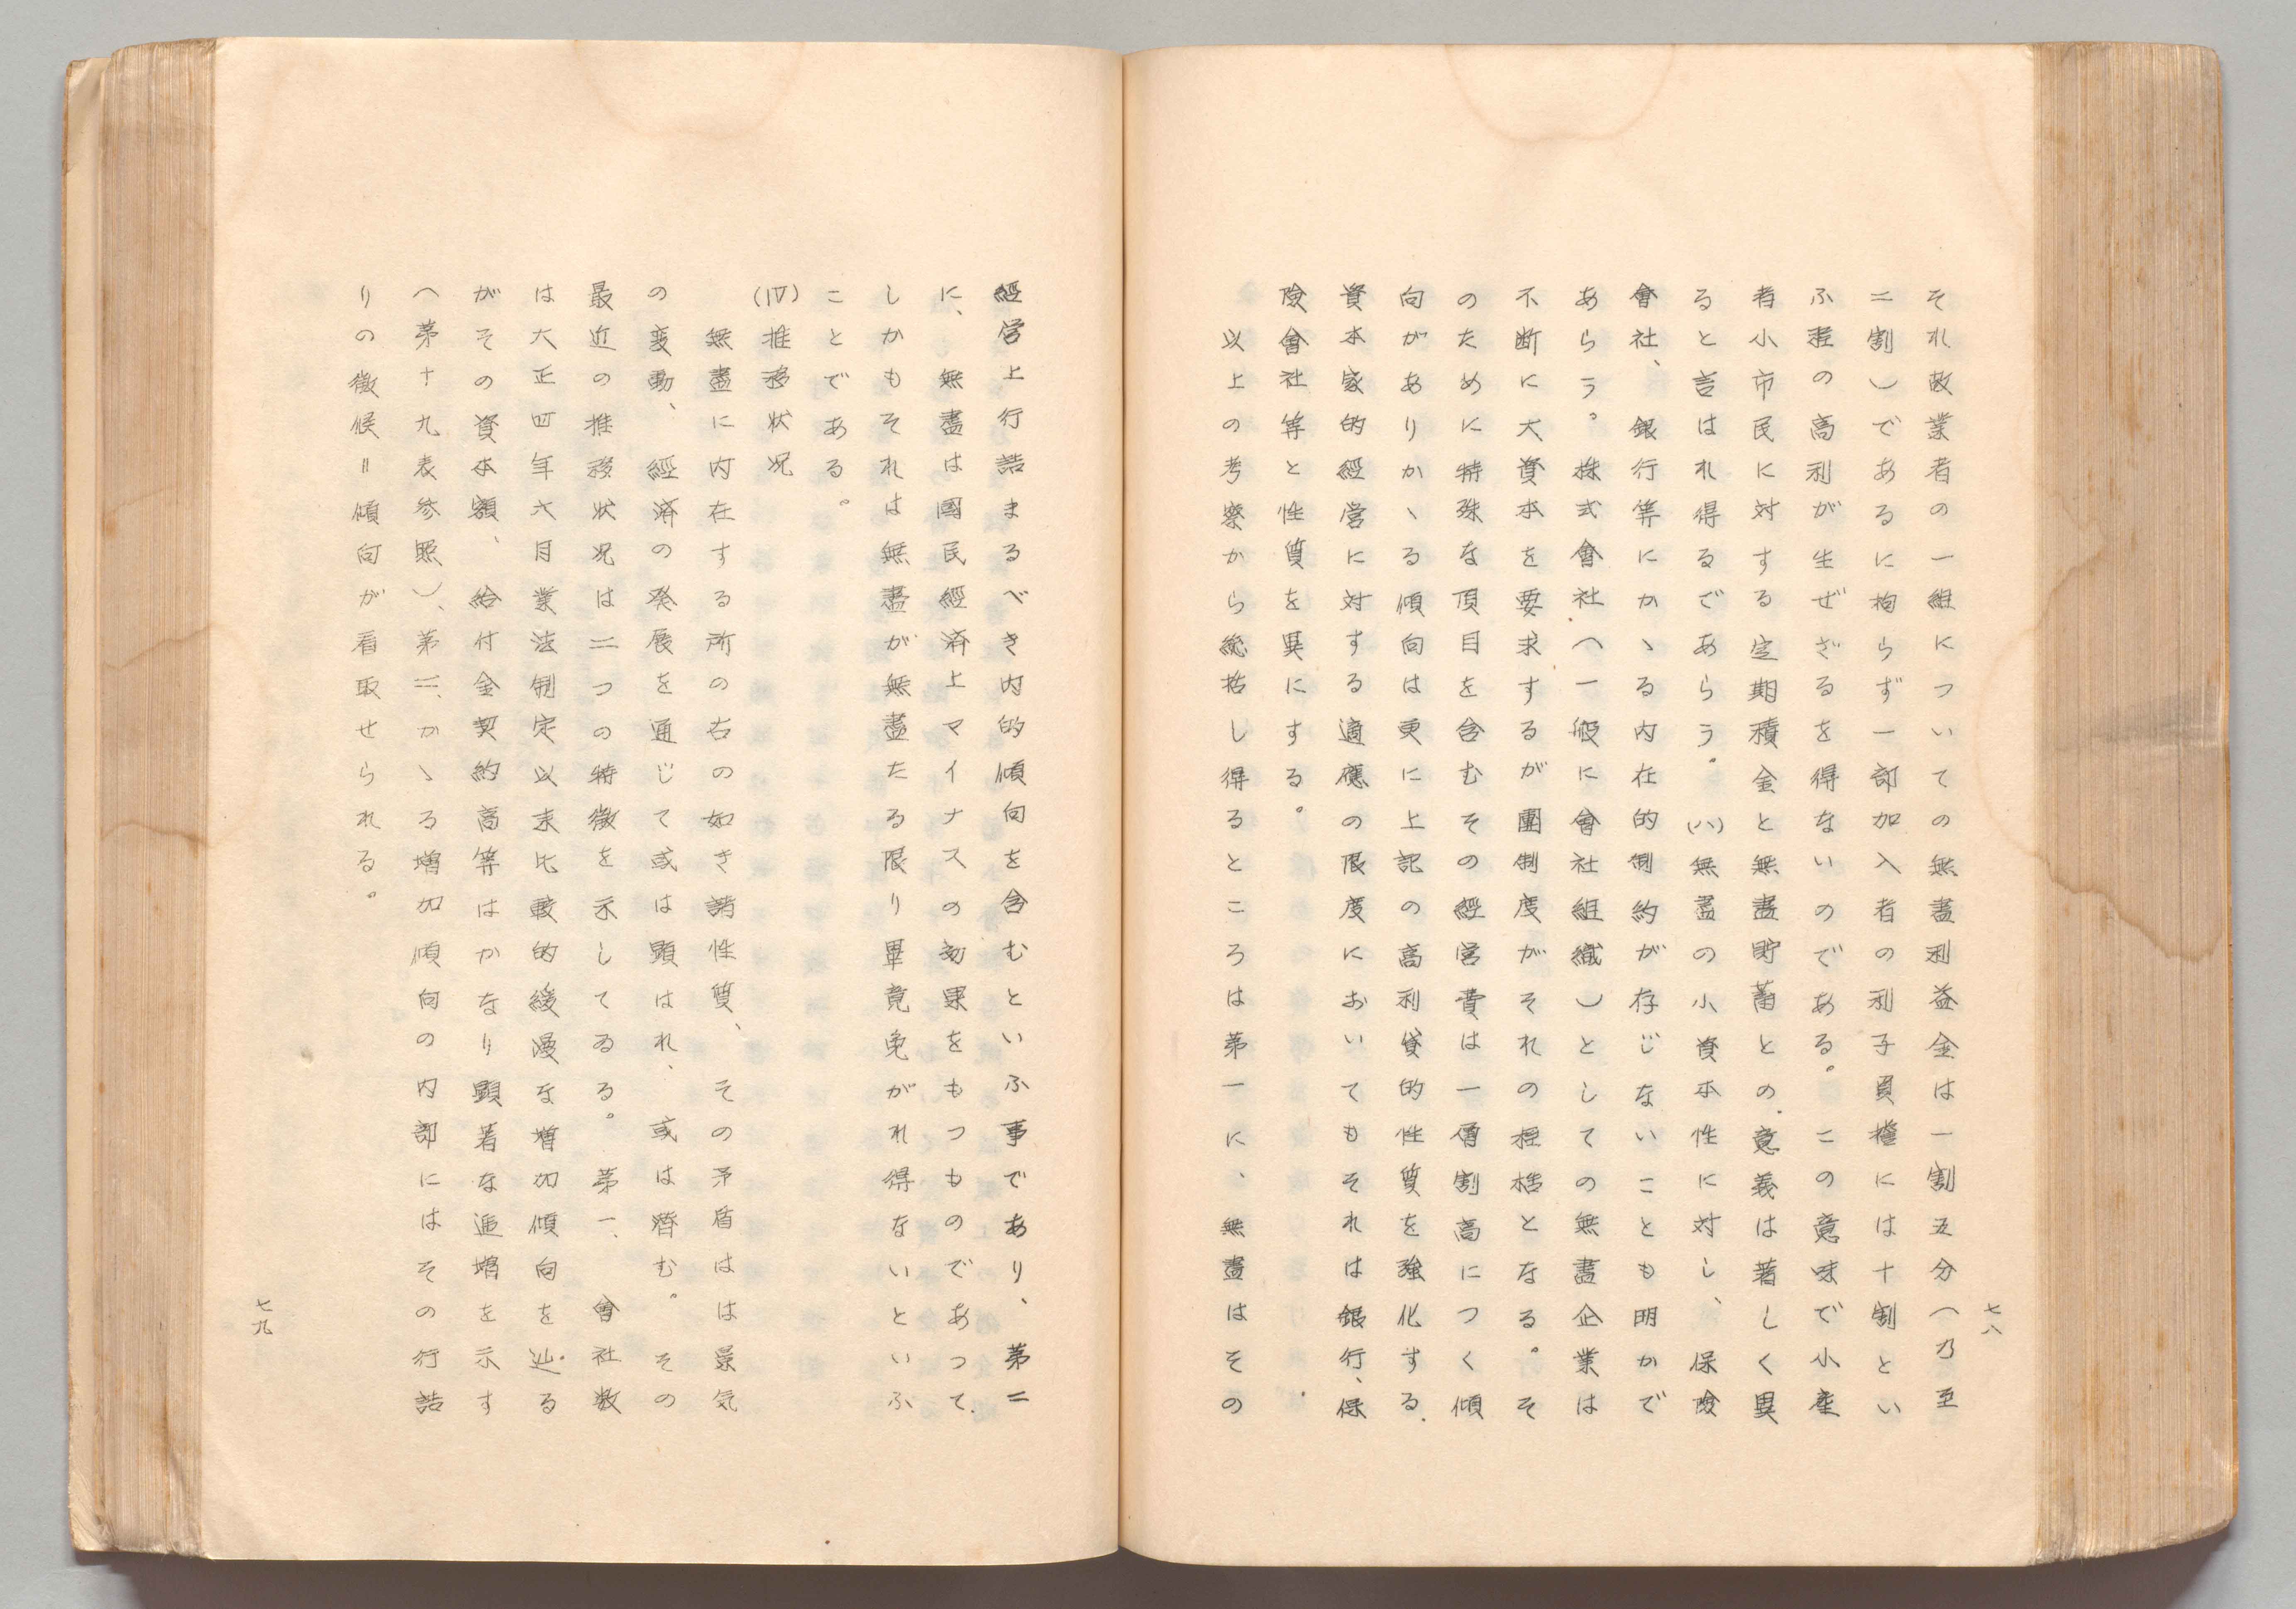 七八
それ故業者の一組についての無盡利益金は一割五分（乃至
二割）であるに拘らず一部加入者の利子負擔には十割とい
ふ程の高利が生ぜざるを得ないのである。この意味で小産
者小市民に対する定期積金と無盡貯蓄との意義は著しく異
ると言はれ得るであらう。(八)無盡の小資本性に対し、保險
會社、銀行等にかゝる内在的制約が存じないことも明かで
あらう。株式會社（一般に會社組織）としての無盡企業は
不断に大資本を要求するが團制度がそれの桎梏となる。そ
のために特殊な項目を含むその経営費は一層割高につく傾
向がありかゝる傾向は更に上記の高利貸的性質を強化する.
資本家的經営に対する適應の限度においてもそれは銀行、保
險會社等と性質を異にする。
以上の考察から総括し得るところは第一に、無盡はその
經営上行詰まるべき内的傾向を含むといふ事であり、第二
に、無盡は國民經済上マイナスの効果をもつものであつて.
しかもそれは無盡が無盡たる限り畢竟免がれ得ないといふ
ことである。
(四)推移状況
無盡に内在する所の右の如き諸性質、その矛盾は景気
の変動、經済の発展を通じて或は顕はれ、或は潛む。その
最近の推移状況は二つの特徴を示してゐる。第一、會社数
は大正四年六月業法制定以来比較的緩慢な増加傾向を辿る
がその資本額、給付金契約高等はかなり顕著な逓増を示す
（第十九表参照）、第二、かゝる増加傾向の内部にはその行詰
りの徴候＝傾向が看取せられる。
七九